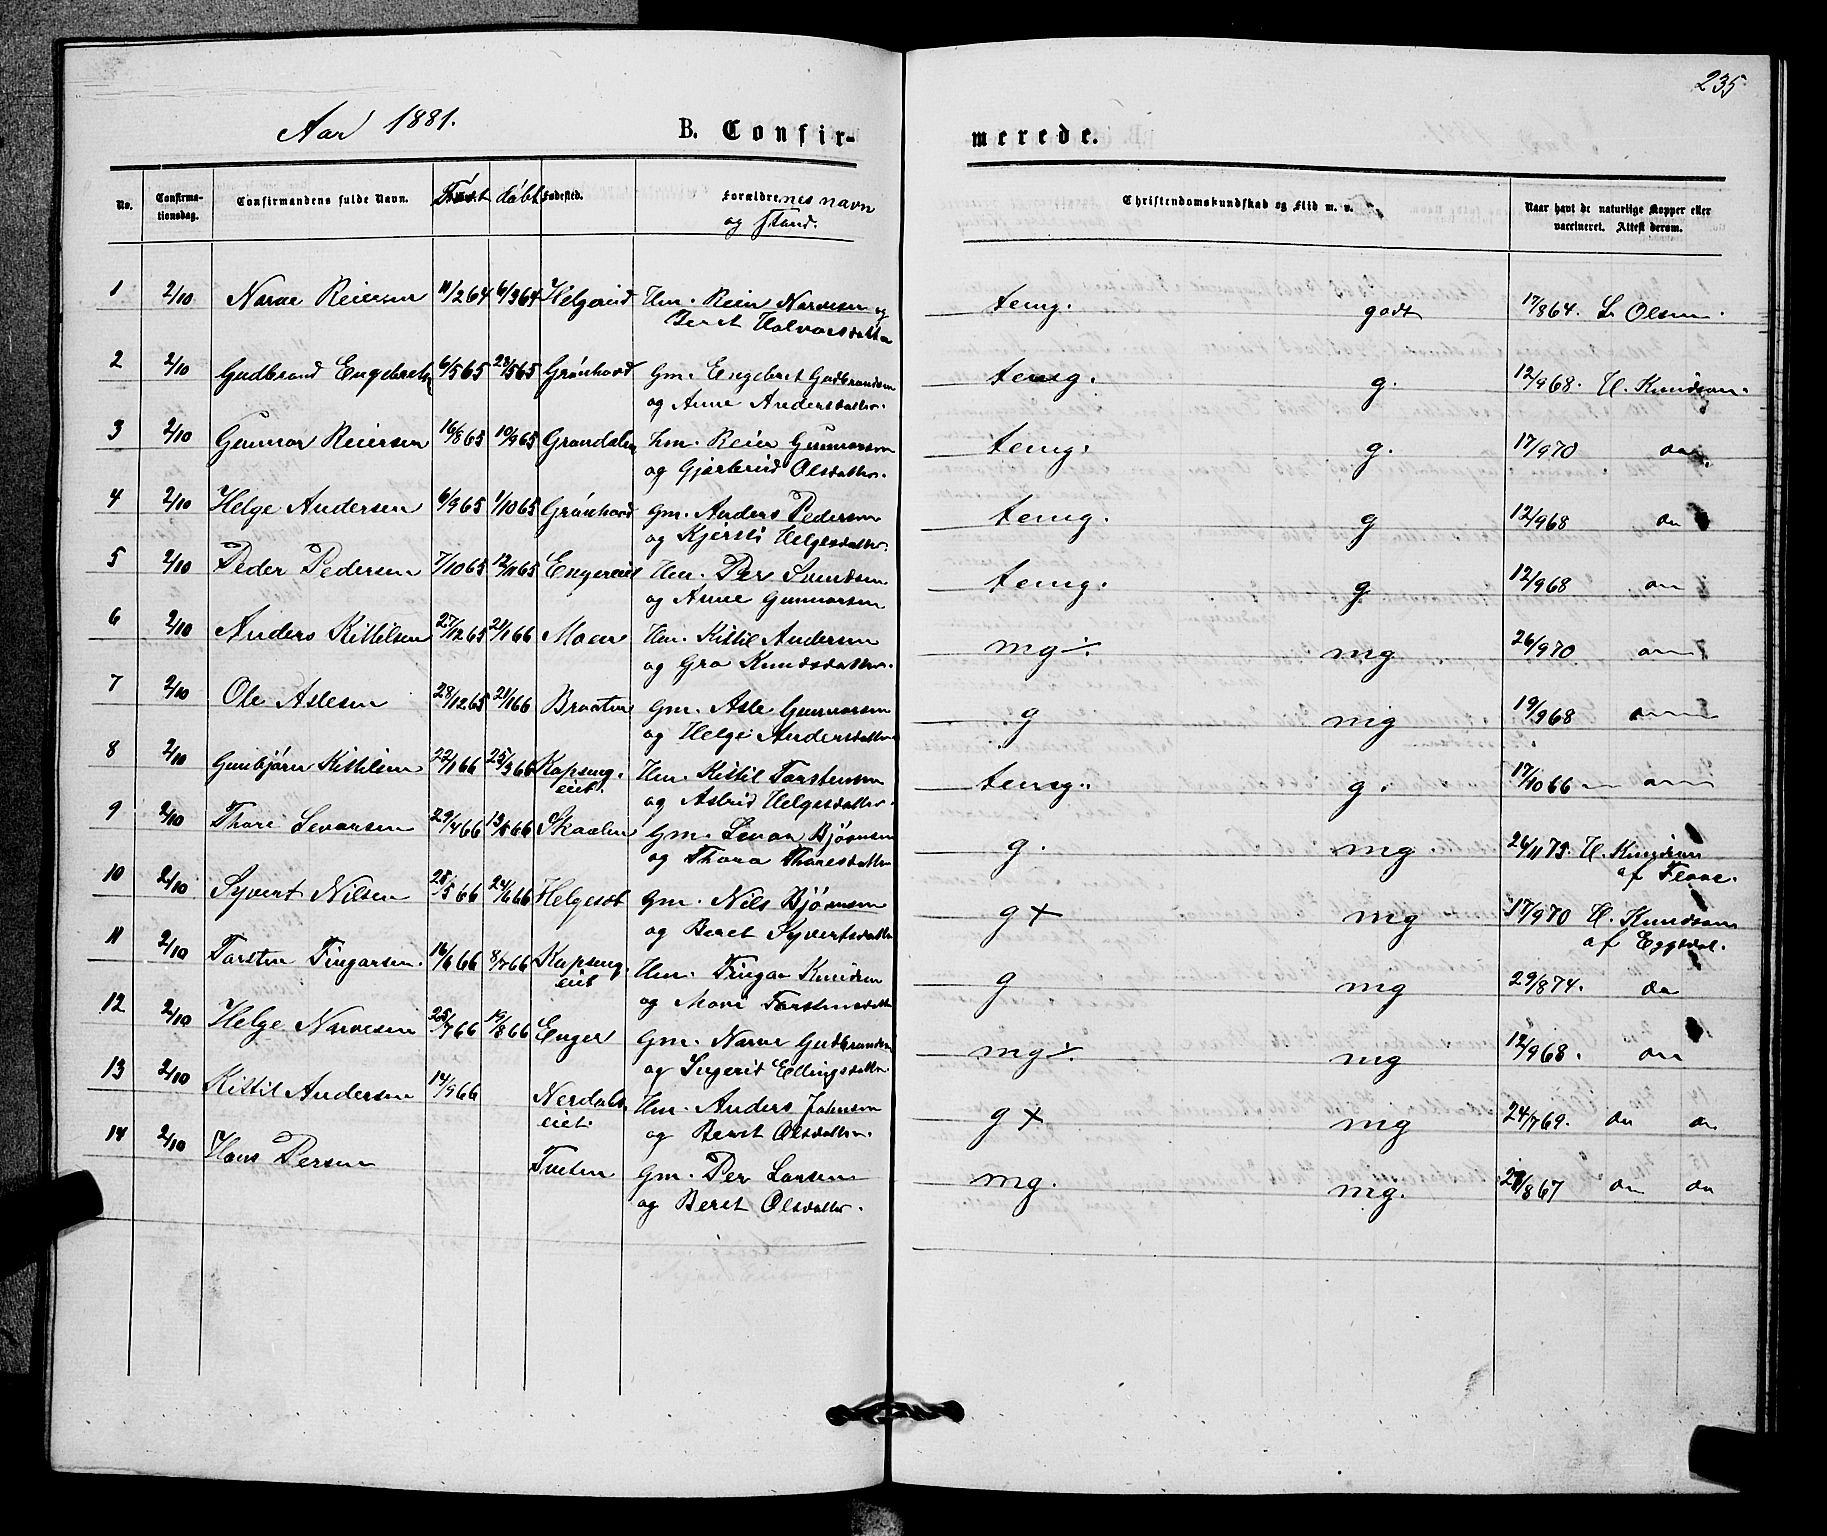 235
Aar 1881.
B. Confir-
merede.
No. Confirmationsdag. Confirmandens fulde Navn. Født døbt Fødested. Forældrenes navn og stand. Christendomskundskab og Flid m. v. Naar havt de naturlige Kopper eller vaccineret. Attest derom.
1 2/10 Narve Reiersen 11/2 64 6/3 64 Helgerud Hm. Reier Narvesen og temg. godt 17/8 64 L Olsen.
Beret Halvorsdatter
2 2/10 Gudbrand Engebrets 6/5 65 28/5 65 Grønhovd Gm. Engebret Gudbrandsen temg. g. 12/9 68. H. Knudsen.
og Anne Andersdatter.
3 2/10 Gunnar Reiersen 16/8 65 10/9 65 Grøndalen Hm. Reier Gunnarsen temg. g. 17/9 70 do
og Gjertrud Olsdatter.
4 2/10 Helge Andersen 6/9 65 1/10 65 Grønhovd Gm. Anders Pedersen temg. g 12/9 68 do
og Kjersti Helgesdatter.
5 2/10 Peder Pedersen 7/10 65 12/11 65 Engereiet Hm. Per Svendsen temg. g 12/9 68 do
og Anne Gunnarsen
6 2/10 Anders Kittilsen 27/12 65 21/1 66 Moen Hm. Kittil Andersen mg ÷. mg 26/9 70 do
og Gro Knudsdatter.
7 2/10 Ole Aslesen 28/12 65 21/1 66 Braaten Gm. Asle Gunnarsen g mg 19/9 68 do
og Helge Andersdatter
8 2/10 Gunbjørn Kittilsen 22/1 66 25/3 66 Kopseng. Hm. Kittil Torstensen temg. g. 17/10 66 do
eiet. og Astrid Helgesdatter.
9 2/10 Thore Levorsen 29/4 66 13/5 66 Skaalen Gm. Levor Bjørnsen g. mg. 26/11 75 H. Knudsen
og Thora Thoresdatter af Flaae.
10 2/10 Syvert Nilsen 28/5 66 24/6 66 Helgeset Gm. Nils Bjørnsen g + mg 17/9 70 H. Knudsen
og Beret Syvertsdatter af Eggedal.
11 2/10 Torsten Fingarsen. 16/6 66 8/7 66 Kopseng. Hm. Fingar Knudsen g mg 29/8 74. do
eiet og Mari Torstensdatter
12 2/10 Helge Narvesen 25/7 66 19/8 66 Enger Gm. Narve Gudbrandsen mg ÷. mg 12/9 68. do
og Ingerid Ellingsdatter
13 2/10 Kittil Andersen 14/9 66 Nerdals Hm. Anders Johnsen g + mg 24/7 69. do do
eiet. og Beret Olsdatter.
14 2/10 Hans Persen Tuften Gm. Per Larsen mg. mg. 27/8 67 do do
og Beret Olsdatter.